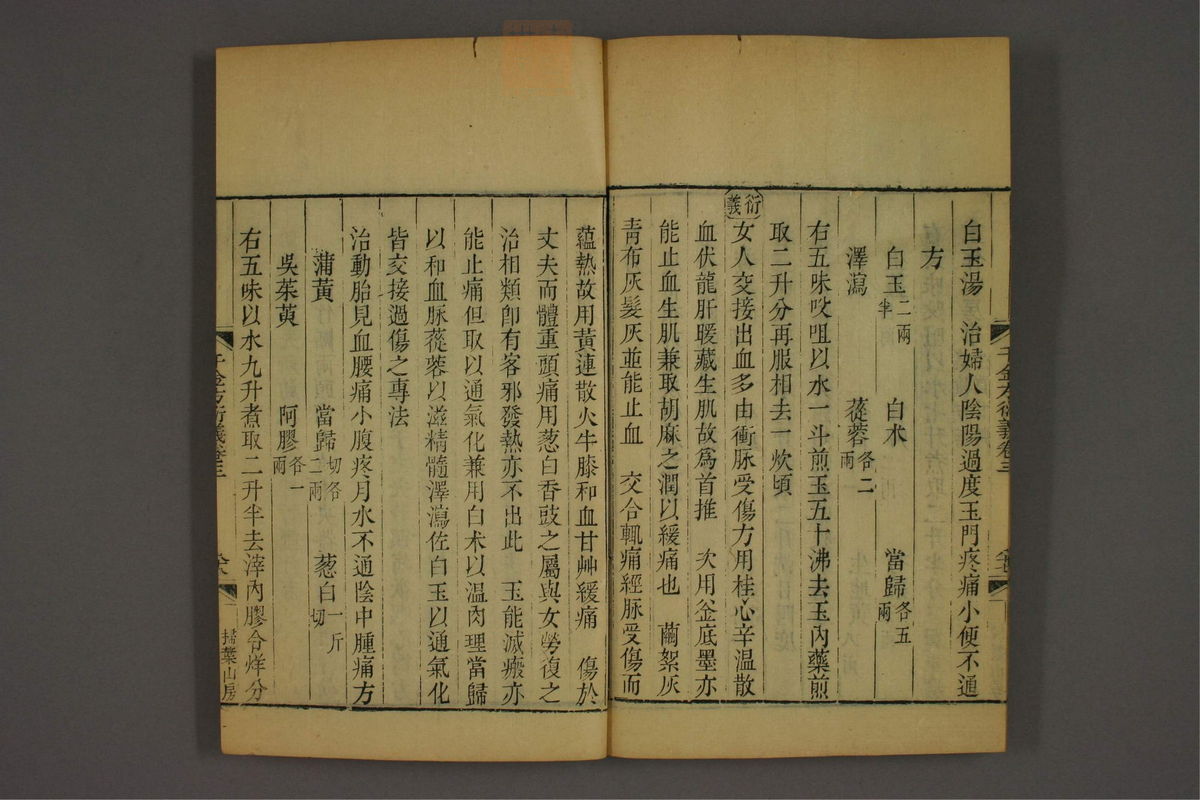 白玉湯　治婦人陰陽過度玉門疼痛小便不通
方
白玉二兩半　白朮　當歸各五兩
澤瀉　蓯蓉各二兩
右五味㕮咀以水一斗煎玉五十沸去玉內藥煎
取二升分再服相去一炊頃
衍義
女人交接出血多由衝脉受傷方用桂心辛溫散
血伏龍肝暖藏生肌故爲首推　次用釜底墨亦
能止血生肌兼取胡麻之潤以緩痛也　繭絮灰
青布灰髮灰並能止血　交合輒痛經脉受傷而
千金方衍義卷三
蘊熱故用黃連散火牛膝和血甘艸緩痛　傷於
丈夫而體重頭痛用葱白香豉之屬與女勞復之
治相類卽有客邪發熱亦不出此　玉能滅瘢亦
能止痛但取以通氣化兼用白朮以溫肉理當歸
以和血脉蓯蓉以滋精髓澤瀉佐白玉以通氣化
皆交接過傷之專法
治動胎見血腰痛小腹疼月水不通陰中腫痛方
蒲黃　當歸切各二兩　葱白一斤切
吳茱萸　阿膠各一兩
右五味以水九升煮取二升半去滓內膠令烊分
千金方衍義卷三
掃葉山房